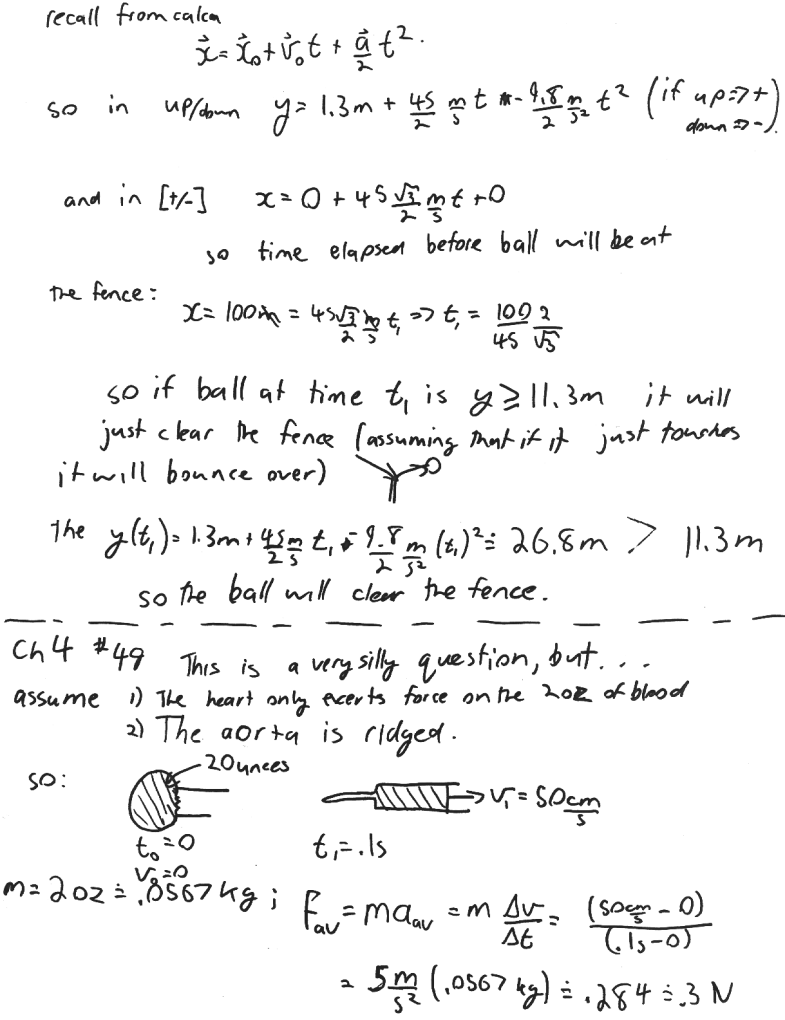 recall from calcu
x⃗ = x⃗₀ + v⃗₀t + a⃗/2 t².
so in up/down y = 1.3m + 45/2 m/s t - 9.8/2 m/s² t² (if up => + down => -).
and in [+/-] x = 0 + 45 √3/2 m/s t + 0
so time elapsed before ball will be at
the fence:
x = 100m = 45 √3/2 m/s t₁ => t₁ = 100/45 2/√3
so if ball at time t₁ is y ≥ 11.3m it will
just clear the fence (assuming that if it just touches
it will bounce over)
The y(t₁) = 1.3m + 45/2 m/s t₁ - 9.8/2 m/s² (t₁)² ≐ 26.8m > 11.3m
so the ball will clear the fence.
Ch 4 #49 This is a very silly question, but...
assume 1) The heart only exerts force on the 2oz of blood
2) The aorta is ridged.
so: 2ounces
v₁ = 50cm/s
t₀ = 0 t₁ = .1s
v₀ = 0
m = 2oz ≐ .0567 kg ; F_av = ma_av = m Δv/Δt = (50cm/s - 0)/(.1s - 0)
= 5 m/s² (.0567 kg) ≐ .284 ≐ .3 N